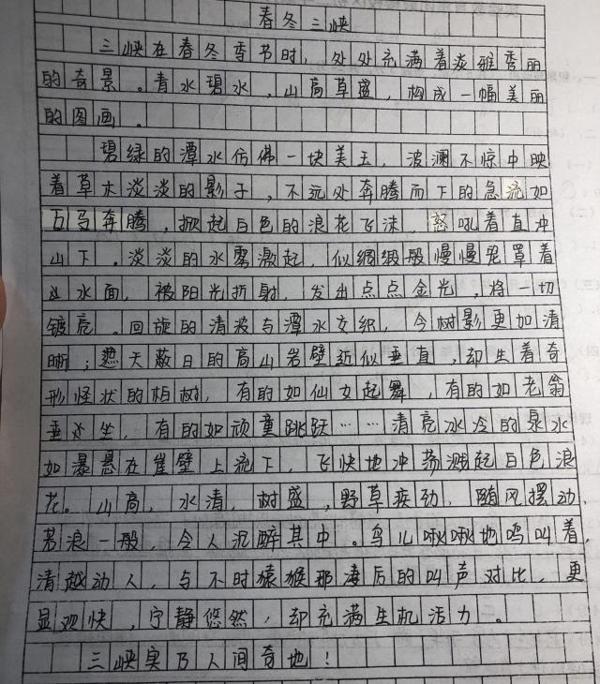 春冬三峡
三峡在春冬季节时，处处充满着淡雅秀丽
的奇景。青水碧水，山高草盛，构成一幅美丽
的图画。
碧绿的潭水仿佛一块美玉，波澜不惊中映
着草木淡淡的影子，不远处奔腾而下的急流如
万马奔腾，掀起白色的浪花飞沫，怒吼着直冲
山下。淡淡的水雾激起，似绸缎般慢慢笼罩着
水面，被阳光折射，发出点点金光，将一切
镀亮。回旋的清波与潭水交织，令树影更加清
晰；遮天蔽日的高山岩壁近似垂直，却生着奇
形怪状的柏树，有的如仙女起舞，有的如老翁
垂坐，有的如顽童跳跃……清亮冰冷的泉水
如瀑悬在崖壁上流下，飞快地冲荡溅起白色浪
花。山高，水清，树盛，野草疾劲，随风摆动，
若浪一般，令人沉醉其中。鸟儿啾啾地鸣叫着，
清越动人，与不时猿猴那凄后的叫声对比，更
显观快，宁静悠然，却充满生机活力。
三峡实乃人间奇地！